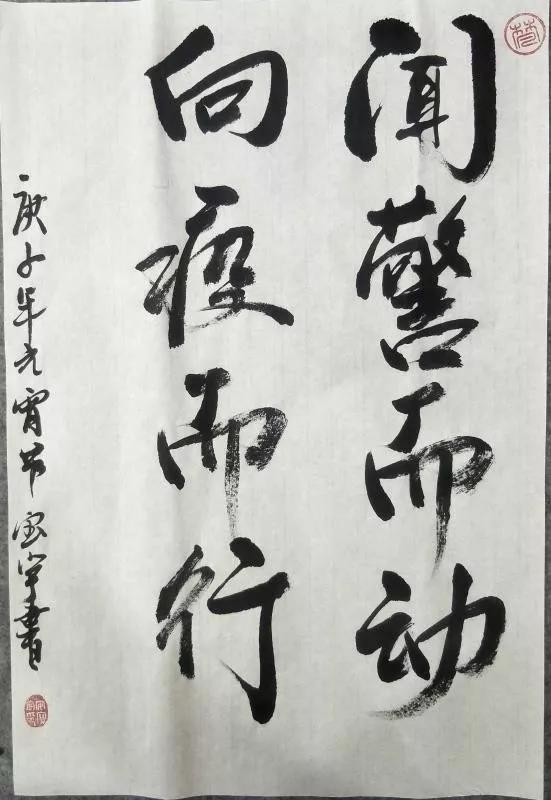 闻警而动
向疫而行
庚子年元宵节 宝宁书